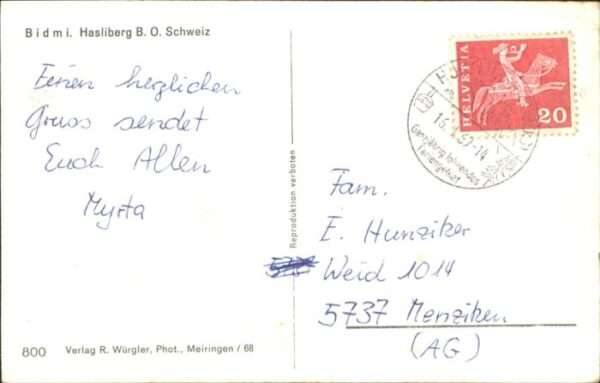 Bidmi. Hasliberg B. O. Schweiz
Einen herzlichen
Gruss sendet
Euch Allen
Myrta
Reproduktion verboten
HELVETIA
20
Ganzjährig lohnendes
Ferienziel
Fam.
E. Hunziker
Weid 1014
5737 Menziken
(AG)
800 Verlag R. Würgler, Phot., Meiringen / 68